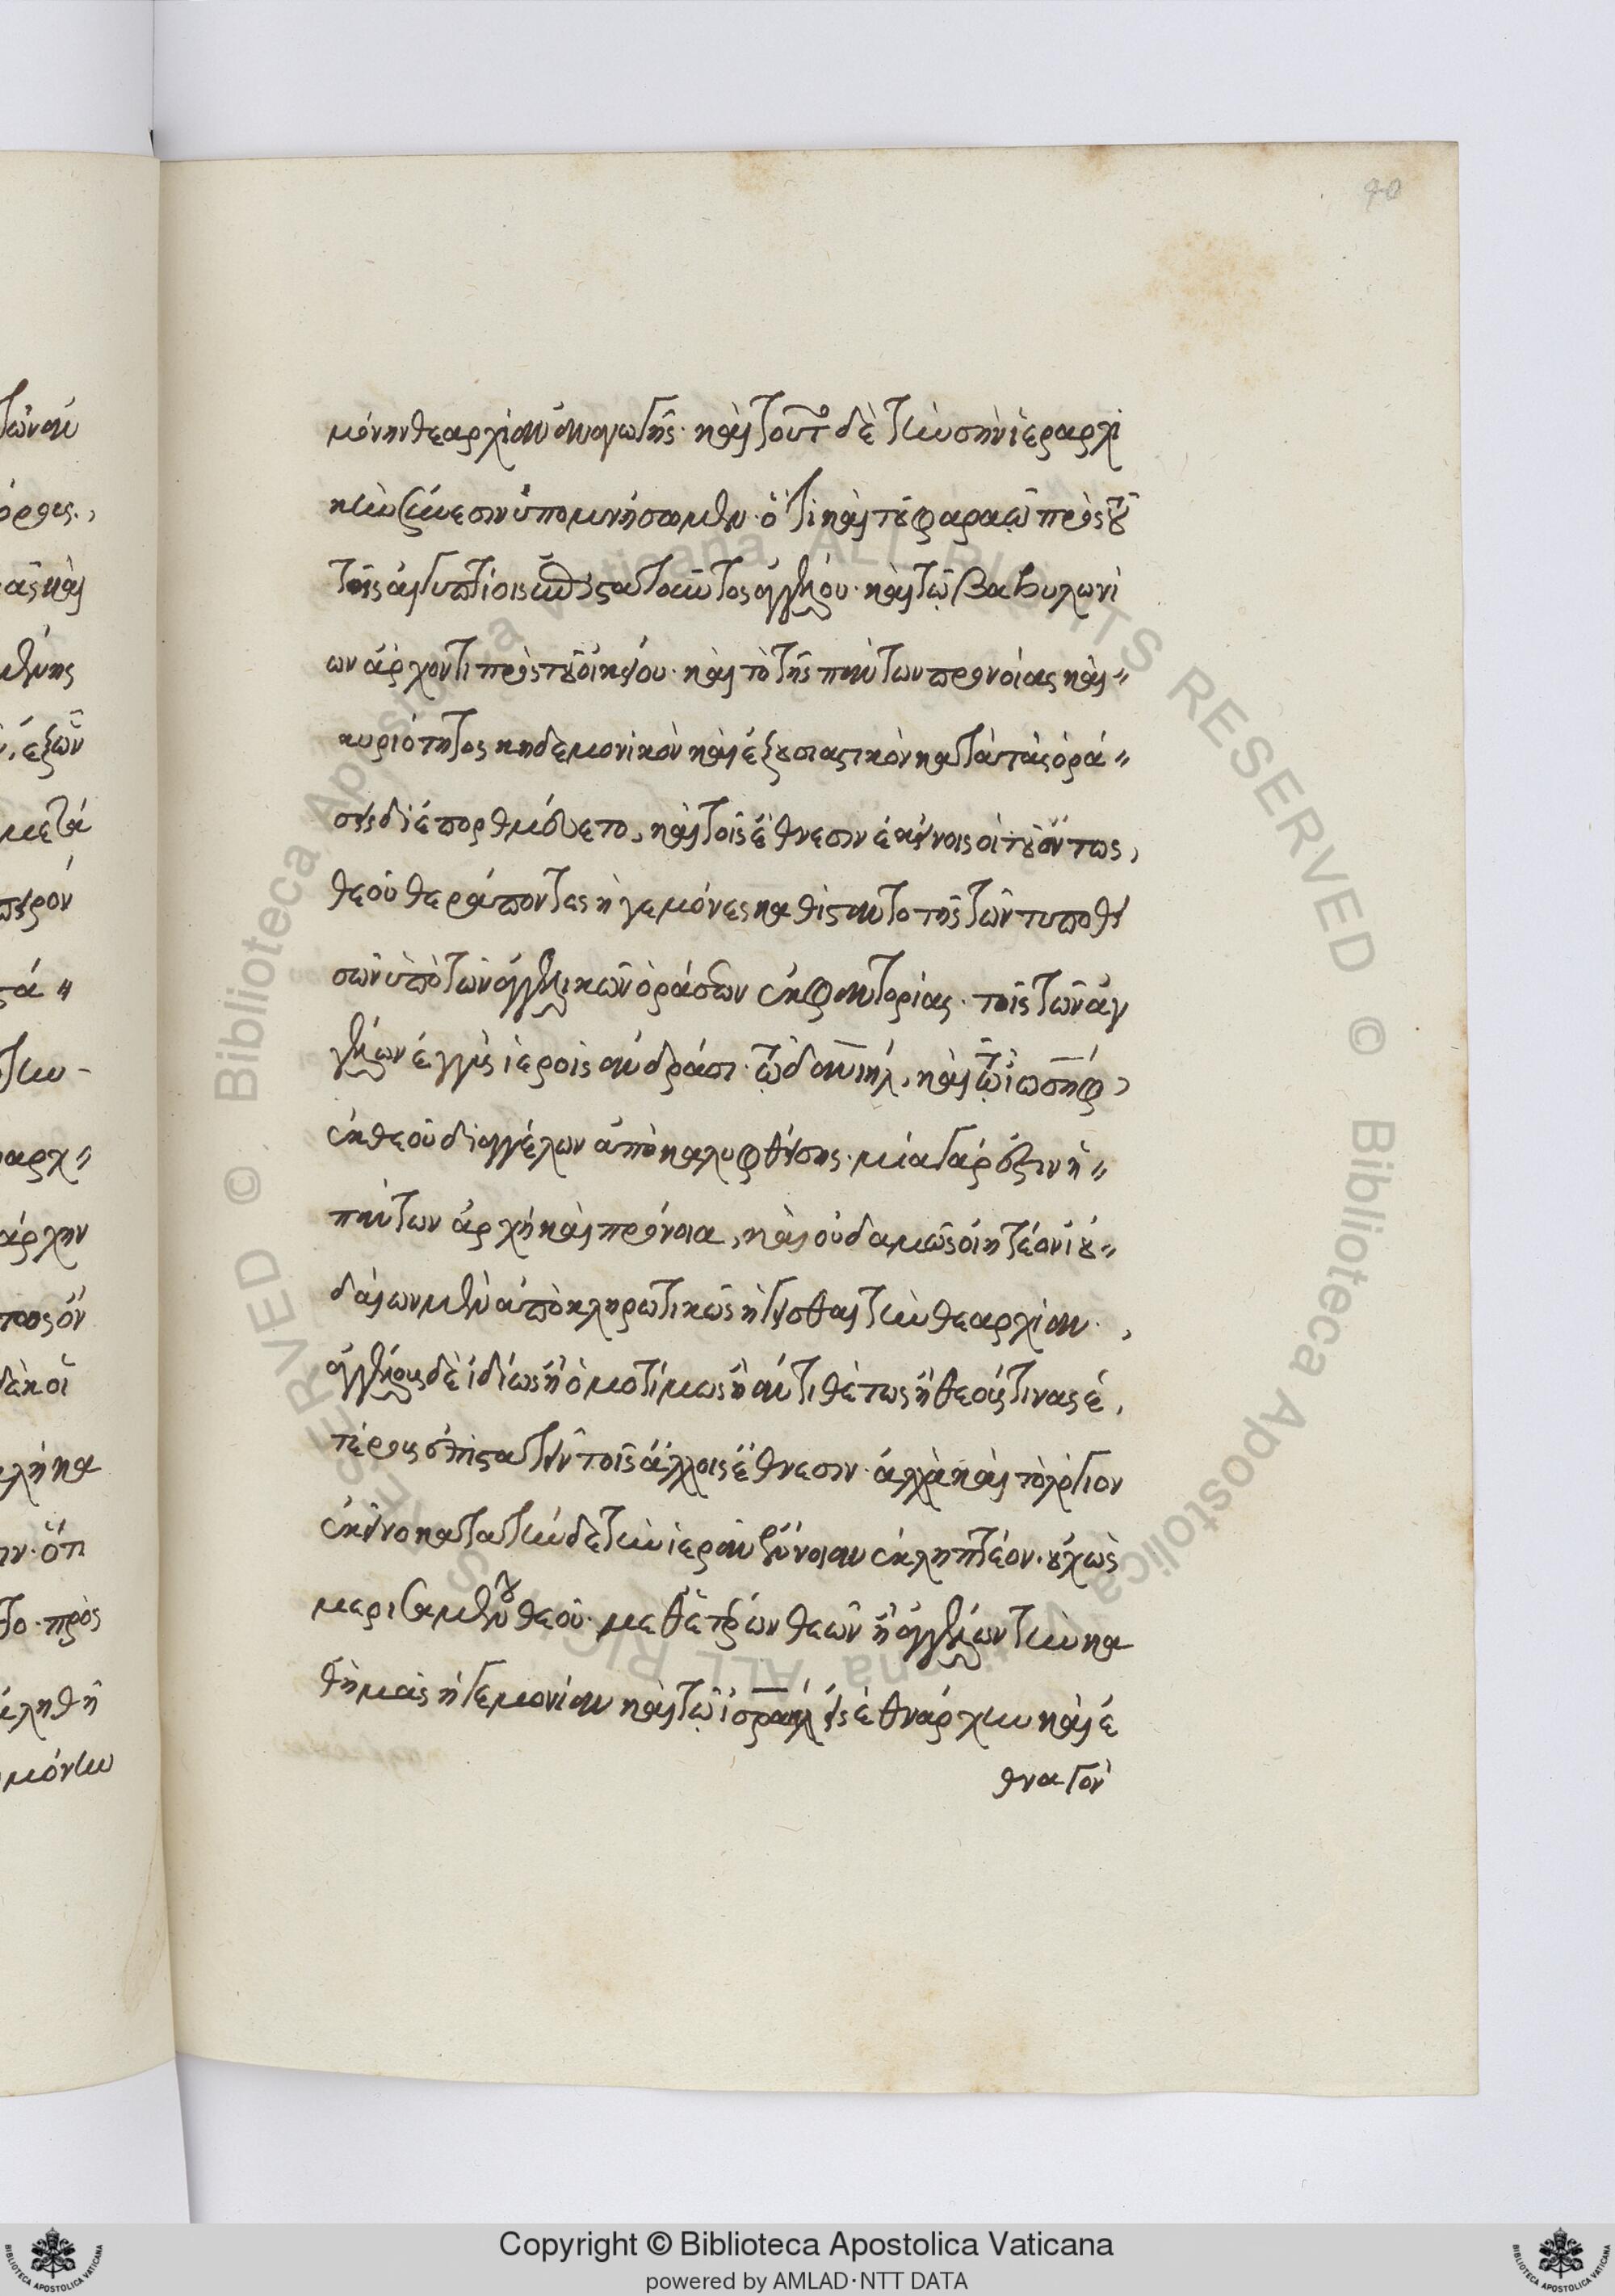 των ἀν
ᾶς καὶ
μένης
, ἐξ ὧν
μετὰ
αρχ〃
άρχην
δὲ καὶ οἱ
ν· ὅτι
το· πρὸς
μόνην
40
μόνην θεαρχίαν ἀναγωγῆς· καὶ τοῦτο δὲ τὴν σὴν ἱεραρχι
κὴν σύνεσιν ὑπομνήσωμεν· ὅτι καὶ τῷ φαραῷ πρὸς τοῦ
τοῖς αἰγυπτίοις ἐπιστατοῦντος ἀγγέλου· καὶ τῷ βαβυλωνί
ων ἄρχοντι πρὸς τοῦ οἰκείου· καὶ τὸ τῆς πάντων προνοίας καὶ〃
κυριότητος κηδεμονικὸν καὶ ἐξουσιαστικὸν κατὰ τὰς ὁρά〃
σεις διεπορθμεύετο, καὶ τοῖς ἔθνεσιν ἐκείνοις οἱ τοῦ ὄντως,
θεοῦ θεράποντες ἡγεμόνες καθίσταντο τῆς τῶν τυπωθει
σῶν ὑπὸ τῶν ἀγγελικῶν ὁράσεων ἐκφαντορίας· τοῖς τῶν ἀγ
γέλων ἐγγὺς ἱεροῖς ἀνδράσι· τῷ δανιὴλ, καὶ τῷ ἰωσὴφ,
ἐκ θεοῦ δι' ἀγγέλων ἀποκαλυφθείσης· μία γάρ ἐστιν ἡ〃
πάντων ἀρχὴ καὶ πρόνοια, καὶ οὐδαμῶς οἰητέον ἰου〃
δαίων μὲν ἀποκληρωτικῶς ἡγεῖσθαι τὴν θεαρχίαν·,
ἀγγέλους δὲ ἰδίως ἢ ὁμοτίμως ἢ ἀντιθέτως ἢ θεούς τινας ἑ,
τέρους ἐπιστατεῖν τοῖς ἄλλοις ἔθνεσιν· ἀλλὰ καὶ τὸ λόγιον
ἐκεῖνο κατὰ τήνδε τὴν ἱερὰν ἔννοιαν ἐκληπτέον· οὐχ ὡς
μερισαμένου θεοῦ· μεθ' ἑτέρων θεῶν ἢ ἀγγέλων τὴν κα
θ' ἡμᾶς ἡγεμονίαν καὶ τῷ ἰσραὴλ εἰς ἐθνάρχην καὶ ἐ
θναγὸν